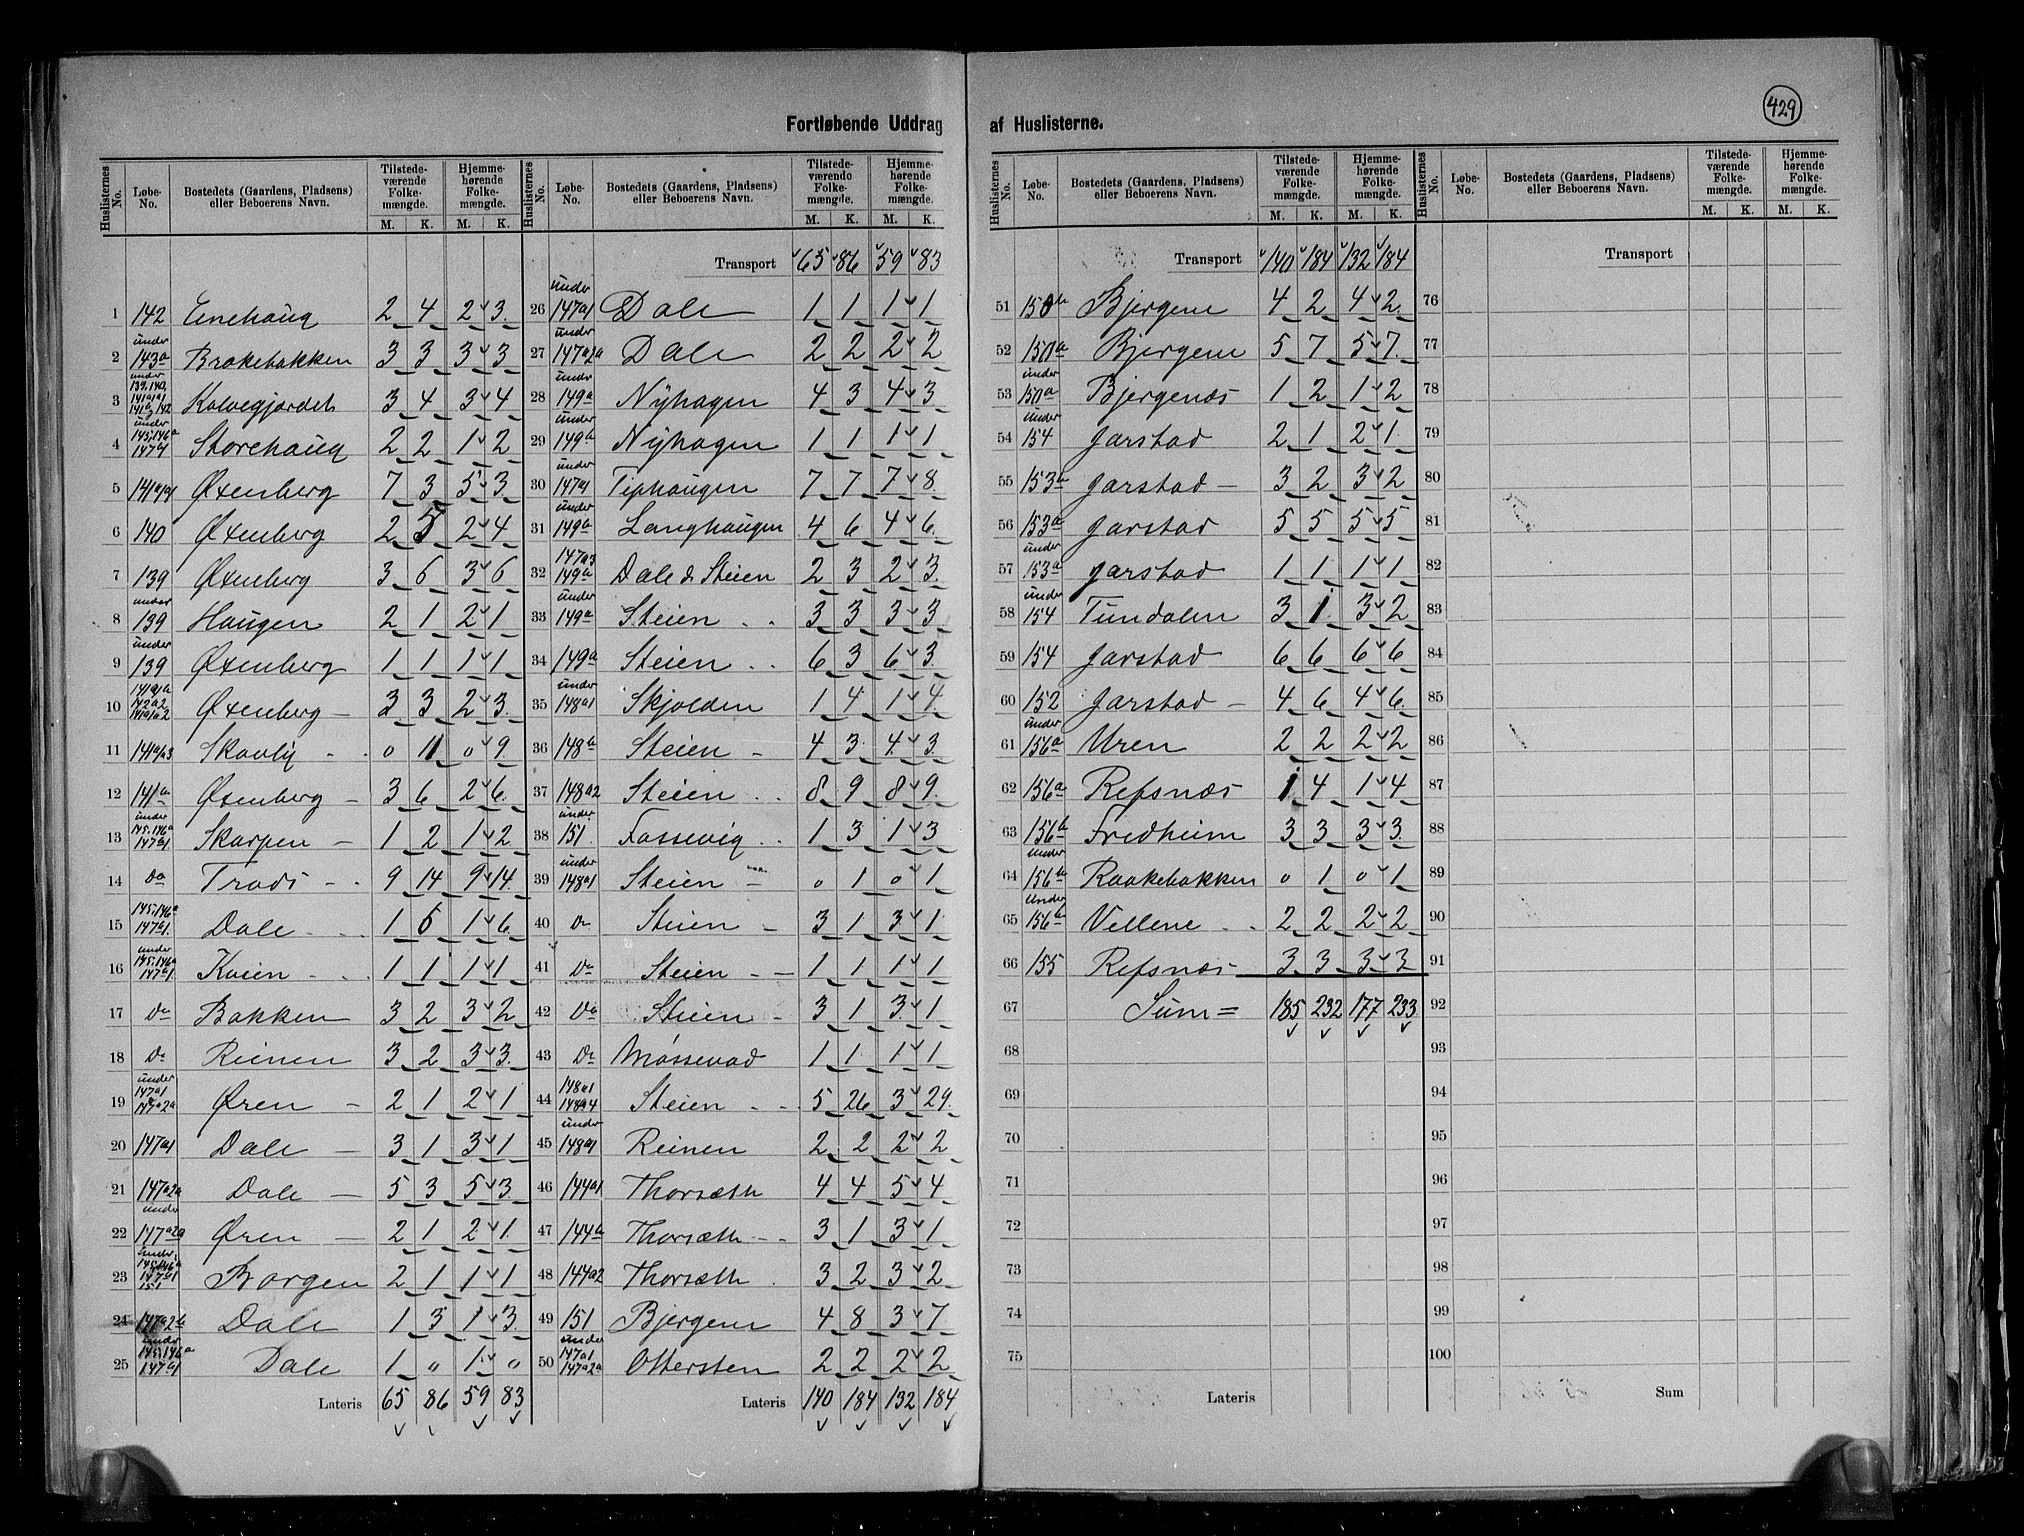 429
Fortløbende Uddrag af Huslisterne.
Huslisternes No. Løbe-No. Bostedets (Gaardens, Pladsens) eller Beboerens Navn. Tilstedeværende Folkemængde. M. K. Hjemmehørende Folkemængde. M. K.
1 142 Enehaug 2 4 2 3
2 under 143a Brakebakken 3 3 3 3
3 under 139, 140, Kalvegjærdet 3 4 3 4
4 under 145, 146a 147a1 Storehaug 2 2 1 2
5 Øxenberg 7 3 5 3
6 140 Øxenberg 2 5 2 4
7 139 Øxenberg 3 6 3 6
8 under 139 Haugen 2 1 2 1
9 under 139 Øxenberg 1 1 1 1
10 Øxenberg 3 3 2 3
11 Skovly 0 11 0 9
12 141a Øxenberg 3 6 2 6
13 under 145, 146a 147a1 Skarpen 1 2 1 2
14 do Træde 9 14 9 14
15 145, 146a 147a1 Dale 1 6 1 6
16 under 145, 146a 147a1 Kvien 1 1 1 1
17 Do Bakken 3 2 3 2
18 Do Reinen 3 2 3 3
19 under 147a1 147a2a Øren 2 1 2 1
20 147a1 Dale 3 1 3 1
21 147a2a Dale 5 3 5 3
22 under 147a2a Øren 2 1 2 1
23 under 145, 146a 147a1 151 Borgen 2 1 1 1
24 147a2b Dale 1 3 1 3
25 under 145, 146a 147a1 Dale 1 0 1 0
Lateris 65 86 59 83
Transport 65 86 59 83
26 under 147a1 Dale 1 1 1 1
27 under 147a2a Dale 2 2 2 2
28 under 149a Nyhagen 4 3 4 3
29 under 149a Nyhagen 1 1 1 1
30 under 147a1 Tiphaugen 7 7 7 8
31 under 149a Langhaugen 4 6 4 6
32 147a3 149a Dale & Steien 2 3 2 3
33 under 149a Steien 3 3 3 3
34 149a Steien 6 3 6 3
35 under 148a1 Skjolden 1 4 1 4
36 148b Steien 4 3 4 3
37 148a2 Steien 8 9 8 9
38 under 151 Fossevig 1 3 1 3
39 under 148a1 Steien 0 1 0 1
40 Do Steien 3 1 3 1
41 Do Steien 1 1 1 1
42 Do Steien 3 1 3 1
43 Do Mossevad 1 1 1 1
44 148a1 148a4 Steien 5 26 3 29
45 under 148a1 Reinen 2 2 2 2
46 144a1 Thorsæth 4 4 5 4
47 144a Thorsæth 3 1 3 1
48 144a2 Thorsæth 3 2 3 2
49 151 Bjergene 4 8 3 7
50 under 147a1 147a2a Ottersten 2 2 2 2
Lateris 140 184 132 184
Transport 140 184 132 184
51 150b Bjergene 4 2 4 2
52 150a Bjergene 5 7 5 7
53 under 150a Bjergenæs 1 2 1 2
54 under 154 Jarstad 2 1 2 1
55 153b Jarstad 3 2 3 2
56 153a Jarstad 5 5 5 5
57 under 153a Jarstad 1 1 1 1
58 under 154 Tundalen 3 1 3 2
59 154 Jarstad 6 6 6 6
60 152 Jarstad 4 6 4 6
61 under 156a Uren 2 2 2 2
62 156a Refsnæs 1 4 1 4
63 156b Fredheim 3 3 3 3
64 under 156b Raakebakken 0 1 0 1
65 under 156b Vellene 2 2 2 2
66 155 Refsnæs 3 3 3 3
67 Sum = 185 232 177 233
68
69
70
71
72
73
74
75
Lateris
Transport
76
77
78
79
80
81
82
83
84
85
86
87
88
89
90
91
92
93
94
95
96
97
98
99
100
Sum